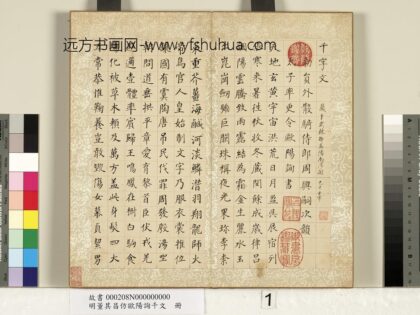 远方书画网-www.yfshuhua.com
千字文
員外散騎侍郎周興嗣次韻
太子率更令歐陽詢書
天地玄黃宇宙洪荒日月盈昃辰宿列
張寒來暑往秋收冬藏閏餘成歲律呂
調陽雲騰致雨露結為霜金生麗水玉
出崑崗劍號巨闕珠稱夜光果珍李柰
菜重芥薑海鹹河淡鱗潛羽翔龍師火
帝鳥官人皇始制文字乃服衣裳推位
讓國有虞陶唐弔民伐罪周發殷湯坐
朝問道垂拱平章愛育黎首臣伏戎羌
遐邇壹體率賓歸王鳴鳳在樹白駒食
場化被草木賴及萬方蓋此身髮四大
五常恭惟鞠養豈敢毀傷女慕貞絜男
故書 000208N000000000
明董其昌仿歐陽詢千文 冊
1